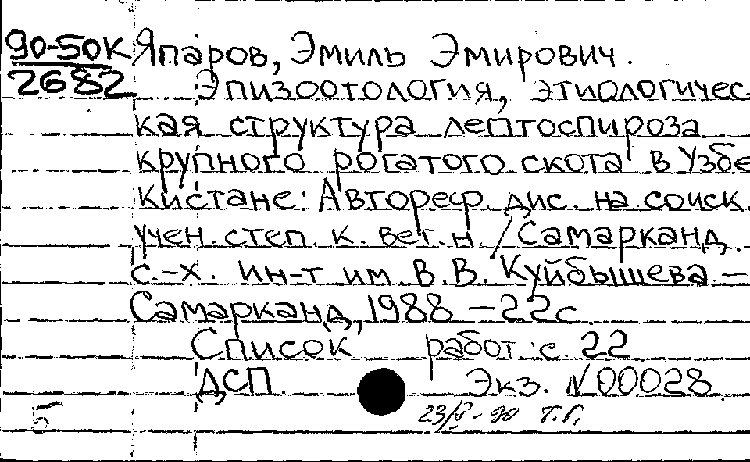 90-50К Япаров, Эмиль Эмирович.
2682 Эпизоотология, этиологичес-
кая структура лептоспироза
крупного рогатого скота в Узбе-
кистане: Автореф. дис. на соиск.
учен. степ. к. вет. н. / Самарканд.
с.-х. ин-т им. В. В. Куйбышева. –
Самарканд, 1988 – 22с.
Список работ: с. 22
ДСП Экз. N 00028
5